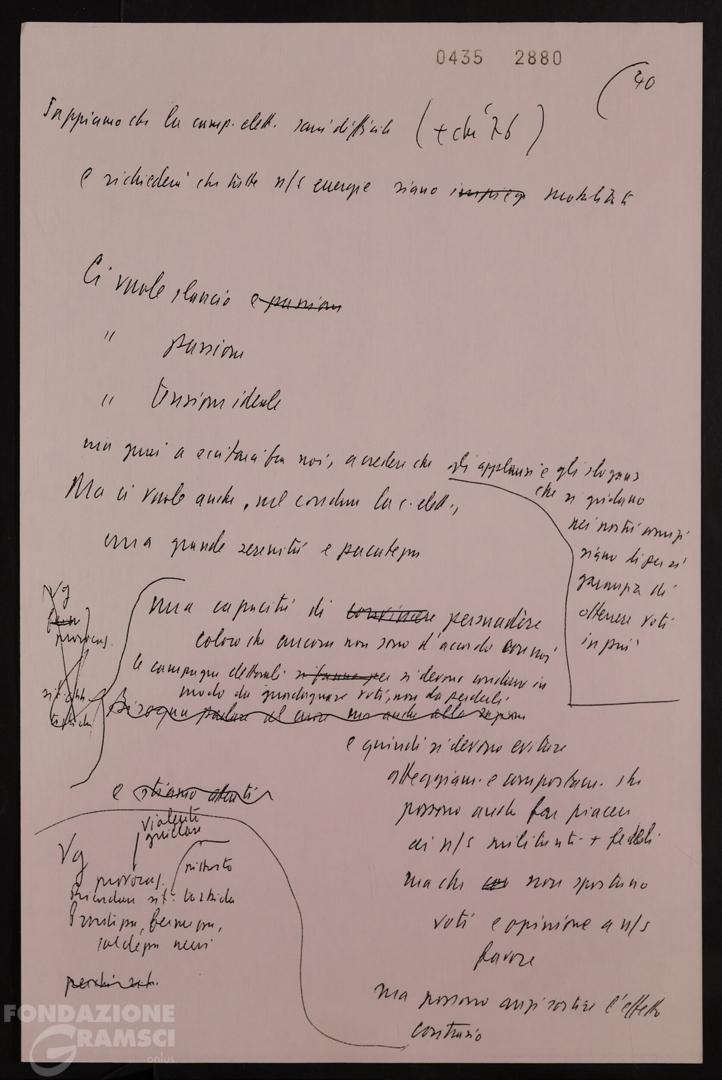 0435 2880
40
Sappiamo che la camp. elett. sarà difficile (+ che '76)
e richiederà che tutte n/s energie siano impieg mobilitate
Ci vuole slancio e passione
" passione
" tensione ideale
ma guai a eccitarsi fra noi, a credere che gli applausi e gli slogans
che si gridano
nei nostri comizi
siano di per sé
garanzia di
ottenere voti
in più
Ma ci vuole anche, nel condurre la c. elett.,
una grande serenità e pacatezza
Vg
provocaz.
una capacità di convincere persuadere
coloro che ancora non sono d'accordo con noi
le campagne elettorali si fanno per si devono condurre in
modo da guadagnare voti, non da perderli
Bisogna parlare al cuore ma anche alla ragione
e quindi si devono evitare
atteggiam. e comportam. che
possono anche far piacere
ai n/s militanti + fedeli
ma che non spostano
voti e opinione a n/s
favore
ma possono anzi sortire l'effetto
contrario
e stiamo attenti
violente
Vg
provocaz.
Prontezza, fermezza,
saldezza nervi
FONDAZIONE
GRAMSCI
onlus